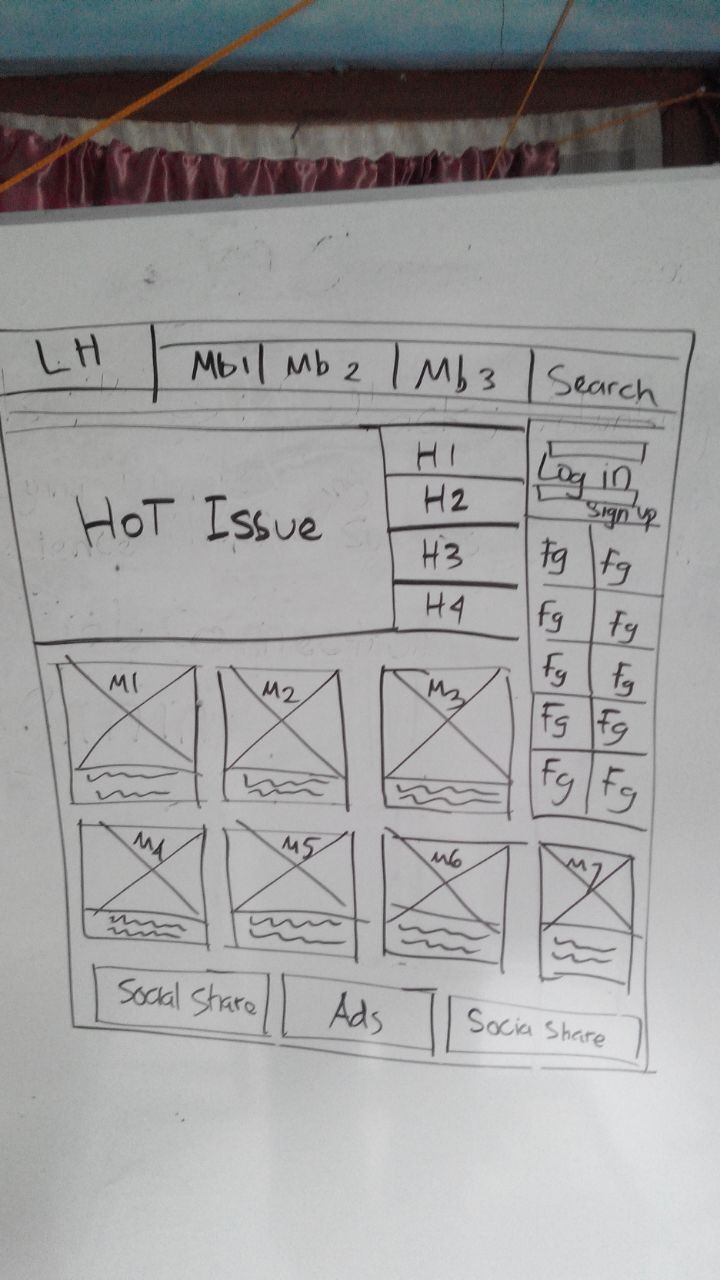 LH Mb1 Mb 2 Mb 3 Search
HOT ISSUE
H1
H2
H3
H4
Log in
Sign up
Fg Fg
Fg Fg
Fg Fg
Fg Fg
Fg Fg
M1 M2 M3
M4 M5 M6 M7
Social Share Ads Socia Share